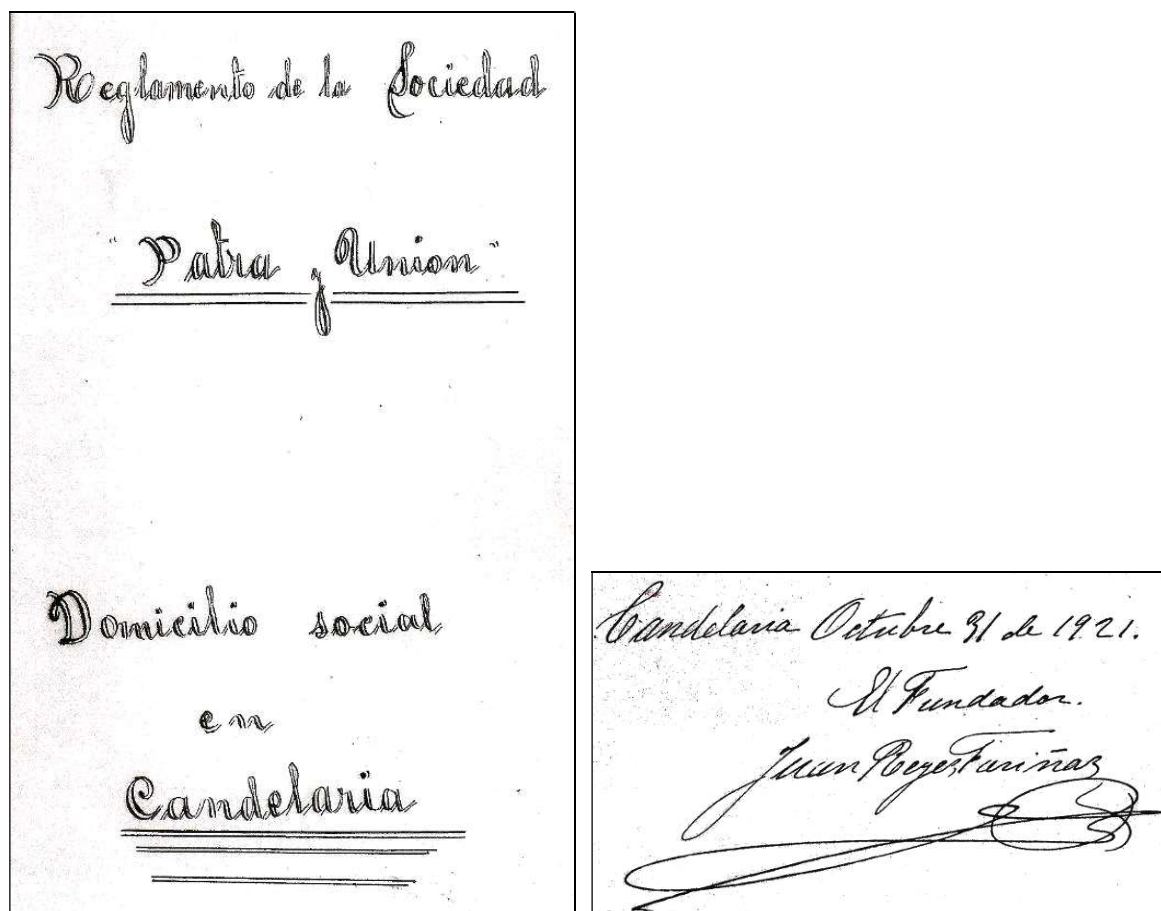 Reglamento de la Sociedad
"Patria y Union"
Domicilio social
en
Candelaria
Candelaria Octubre 31 de 1921.
El Fundador.
Juan Reyes Fariñas